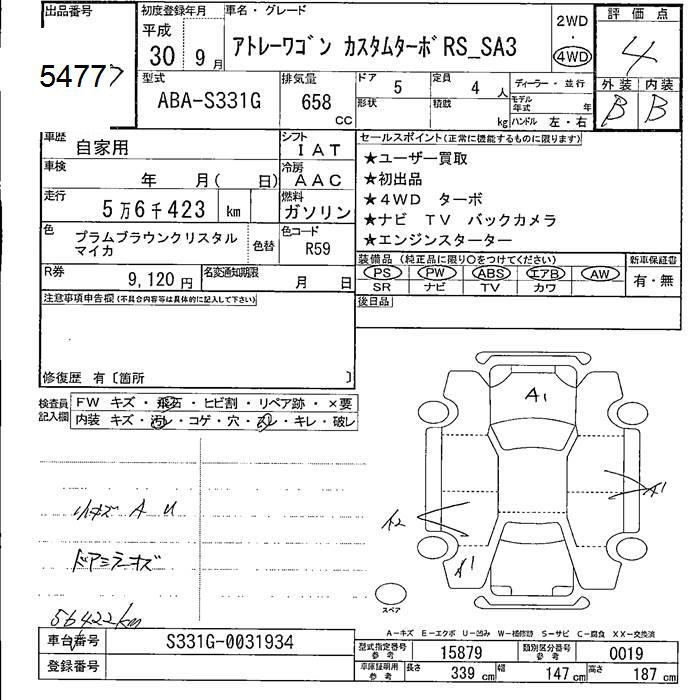 出品番号
54777
初度登録年月
平成
30 9月
車名・グレード
アトレーワゴン カスタムターボRS_SA3
2WD
・
4WD
評価点
4
外装 内装
B B
型式
ABA-S331G
排気量
658 CC
ドア 5
定員 4人
形状
積数 kg
ディーラー・並行
モデル年式 年
ハンドル 左・右
車歴
自家用
シフト
IAT
車検
年 月( 日)
冷房
AAC
走行
5万6千423 km
燃料
ガソリン
色
プラムブラウンクリスタル
マイカ
色替
色コード
R59
R券
9,120円
名変通知期限
月 日
セールスポイント(正常に機能するものに限ります)
★ユーザー買取
★初出品
★4WD ターボ
★ナビ TV バックカメラ
★エンジンスターター
装備品(純正品に限り○をつけてください)
PS PW ABS エアB AW
SR ナビ TV カワ
新車保証書
有・無
後日品
注意事項申告欄(不具合内容等は具体的に記入して下さい)
修復歴 有〔箇所 〕
検査員
記入欄
FW キズ・飛石・ヒビ割・リペア跡・×要
内装 キズ・汚レ・コゲ・穴・スレ・キレ・破レ
小キズ A U
ドアミラーキズ
56422km
A1
A1
A2
A1
スペア
A-キズ E-エクボ U-凹み W-補修跡 S-サビ C-腐食 XX-交換済
車台番号
S331G-0031934
登録番号
型式指定番号
参考
15879
類別区分番号
参考
0019
車庫証明用
参考
長さ 339cm
幅 147cm
高さ 187cm